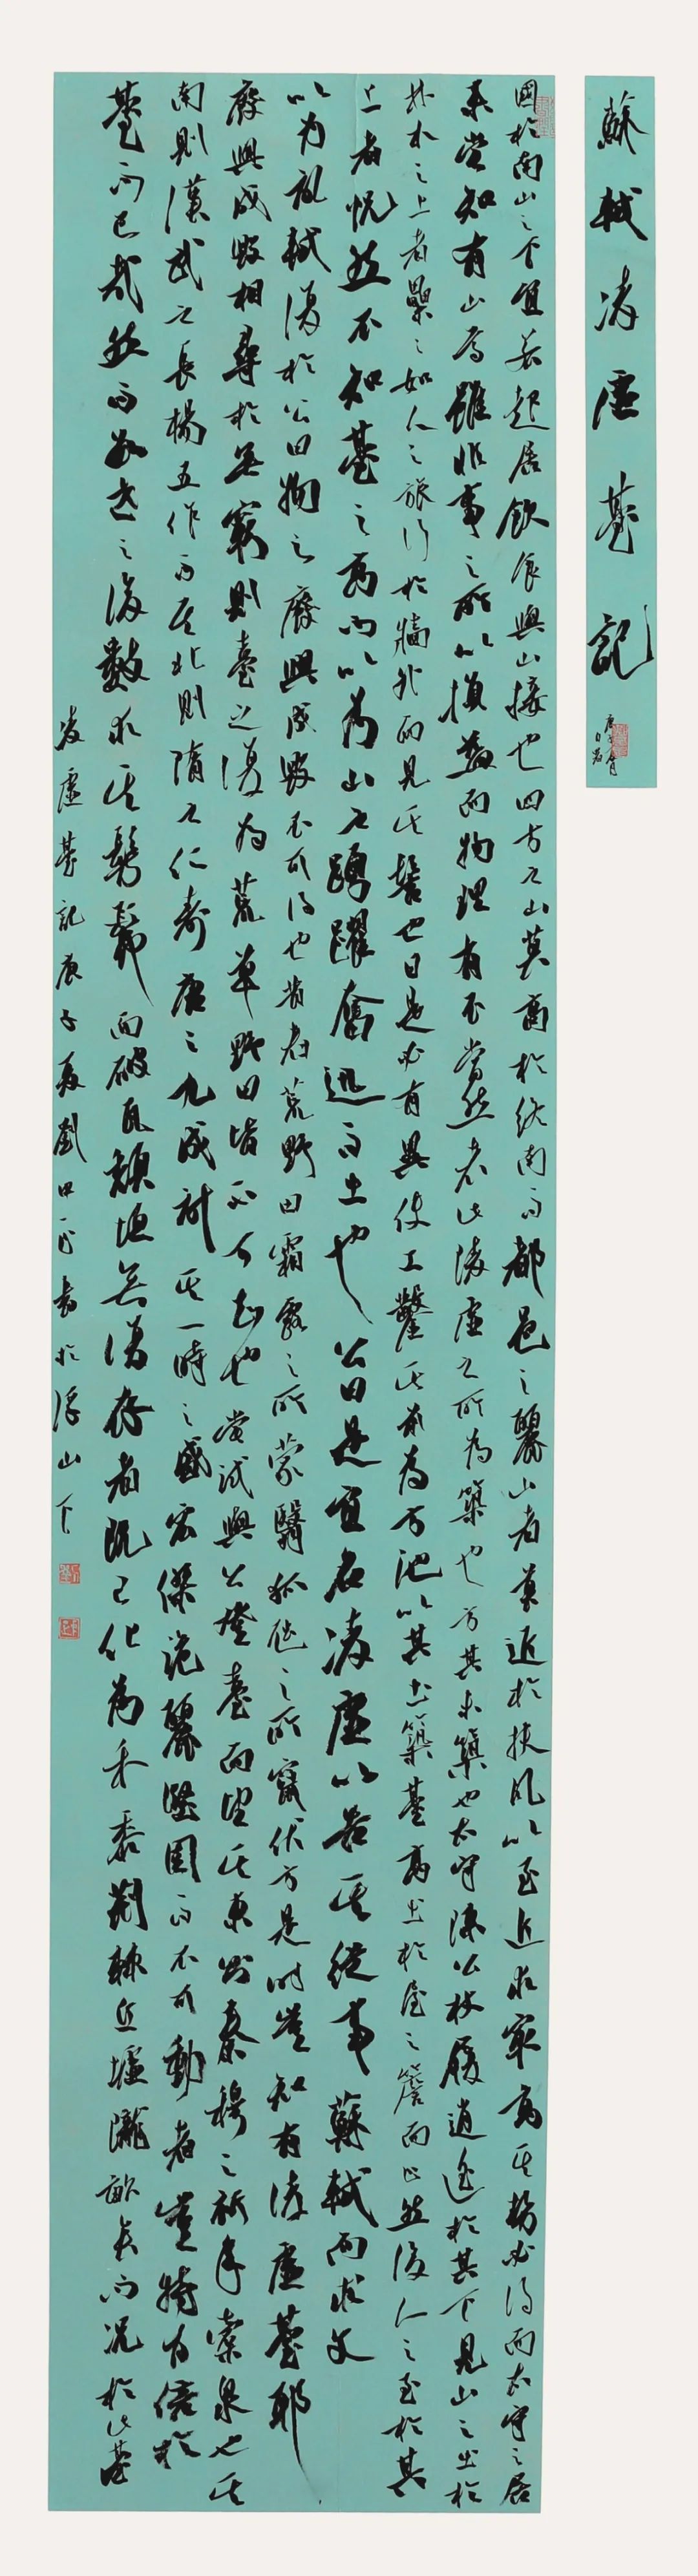 蘇軾凌虛臺記
國於南山之下宜若起居飲食與山接也四方之山莫高於終南而都邑之麗山者莫近於扶風以至近求最高其勢必得而太守之居
未嘗知有山焉雖非事之所以損益而物理有不當然者此凌虛之所為築也方其未築也太守陳公杖履逍遙於其下見山之出於
林木之上者纍纍如人之旅行於牆外而見其髻也曰是必有異使工鑿其前為方池以其土築臺高出於屋之簷而止然後人之至於其
上者怳然不知臺之高而以為山之踴躍奮迅而出也公曰是宜名凌虛以告其從事蘇軾而求文
以為記軾復於公曰物之廢興成毀不可得也昔者荒野田霜露之所蒙翳狐虺之所竄伏方是時豈知有凌虛臺耶
廢興成毀相尋於無窮則臺之復為荒草野田皆不可知也嘗試與公登臺而望其東則秦穆之祈年橐泉也其
南則漢武之長楊五柞而其北則隋之仁壽唐之九成計其一時之盛宏傑詭麗堅固而不可動者豈特百倍於
臺而已哉然而數世之後數求其髣髴而破瓦頹垣無復存者既已化為禾黍荊棘丘墟隴畝矣而況於此臺
凌虛臺記庚子夏劉 書於浮山下